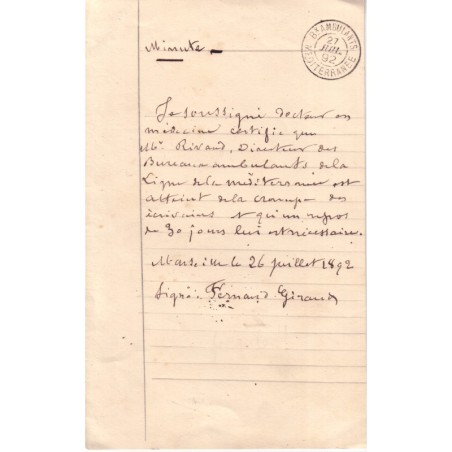 Minute
Bx AMBULANTS
27
JUIL
92
MEDITERRANEE
Je soussigné docteur en
médecine certifie que
Mr Rivaud, Directeur des
Bureaux ambulants de la
Ligne de la méditerranée est
atteint de la crampe des
écrivains & qu'un repos
de 30 jours lui est nécessaire.
Marseille le 26 juillet 1892
Signé: Fernand Giraud